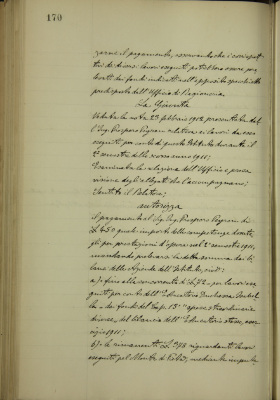 170
zare il pagamento, osservando che i corrispetti-
vi di diversi lavori eseguiti potrebbero essere pre-
levati dai fondi indicati nell'apposito specchietto
predisposto dall'Ufficio di ragioneria.
La Giunta
Veduta la nota 23 febbraio 1912, presentata dal-
l'Ing. Prospero relativa ai lavori da esso
eseguiti per conto di questo Istituto durante il
2° semestre dello scorso anno 1911;
Esaminata la relazione dell'Ufficio e presa
visione degli allegati che l'accompagnano;
Sentito il Relatore;
autorizza
il pagamento al Sig. Ing. Prospero di
£ 450 quale importo delle competenze dovute-
gli per prestazioni d'opera nel 2° semestre 1911,
mandando prelevare la detta somma dai bi-
lanci delle Aziende dell'Istituto, cioè:
a) fino alla concorrenza di £ 52 - per lavori ese-
guiti per conto dell'Educatorio Duchessa Isabel-
la - dai fondi del Cap. 15° "spese straordinarie
diverse" del bilancio dell'Educatorio stesso, eser-
cizio 1911;
b) - le rimanenti £ 398 riguardanti lavori
eseguiti pel Monte di Pietà, mediante imputa-